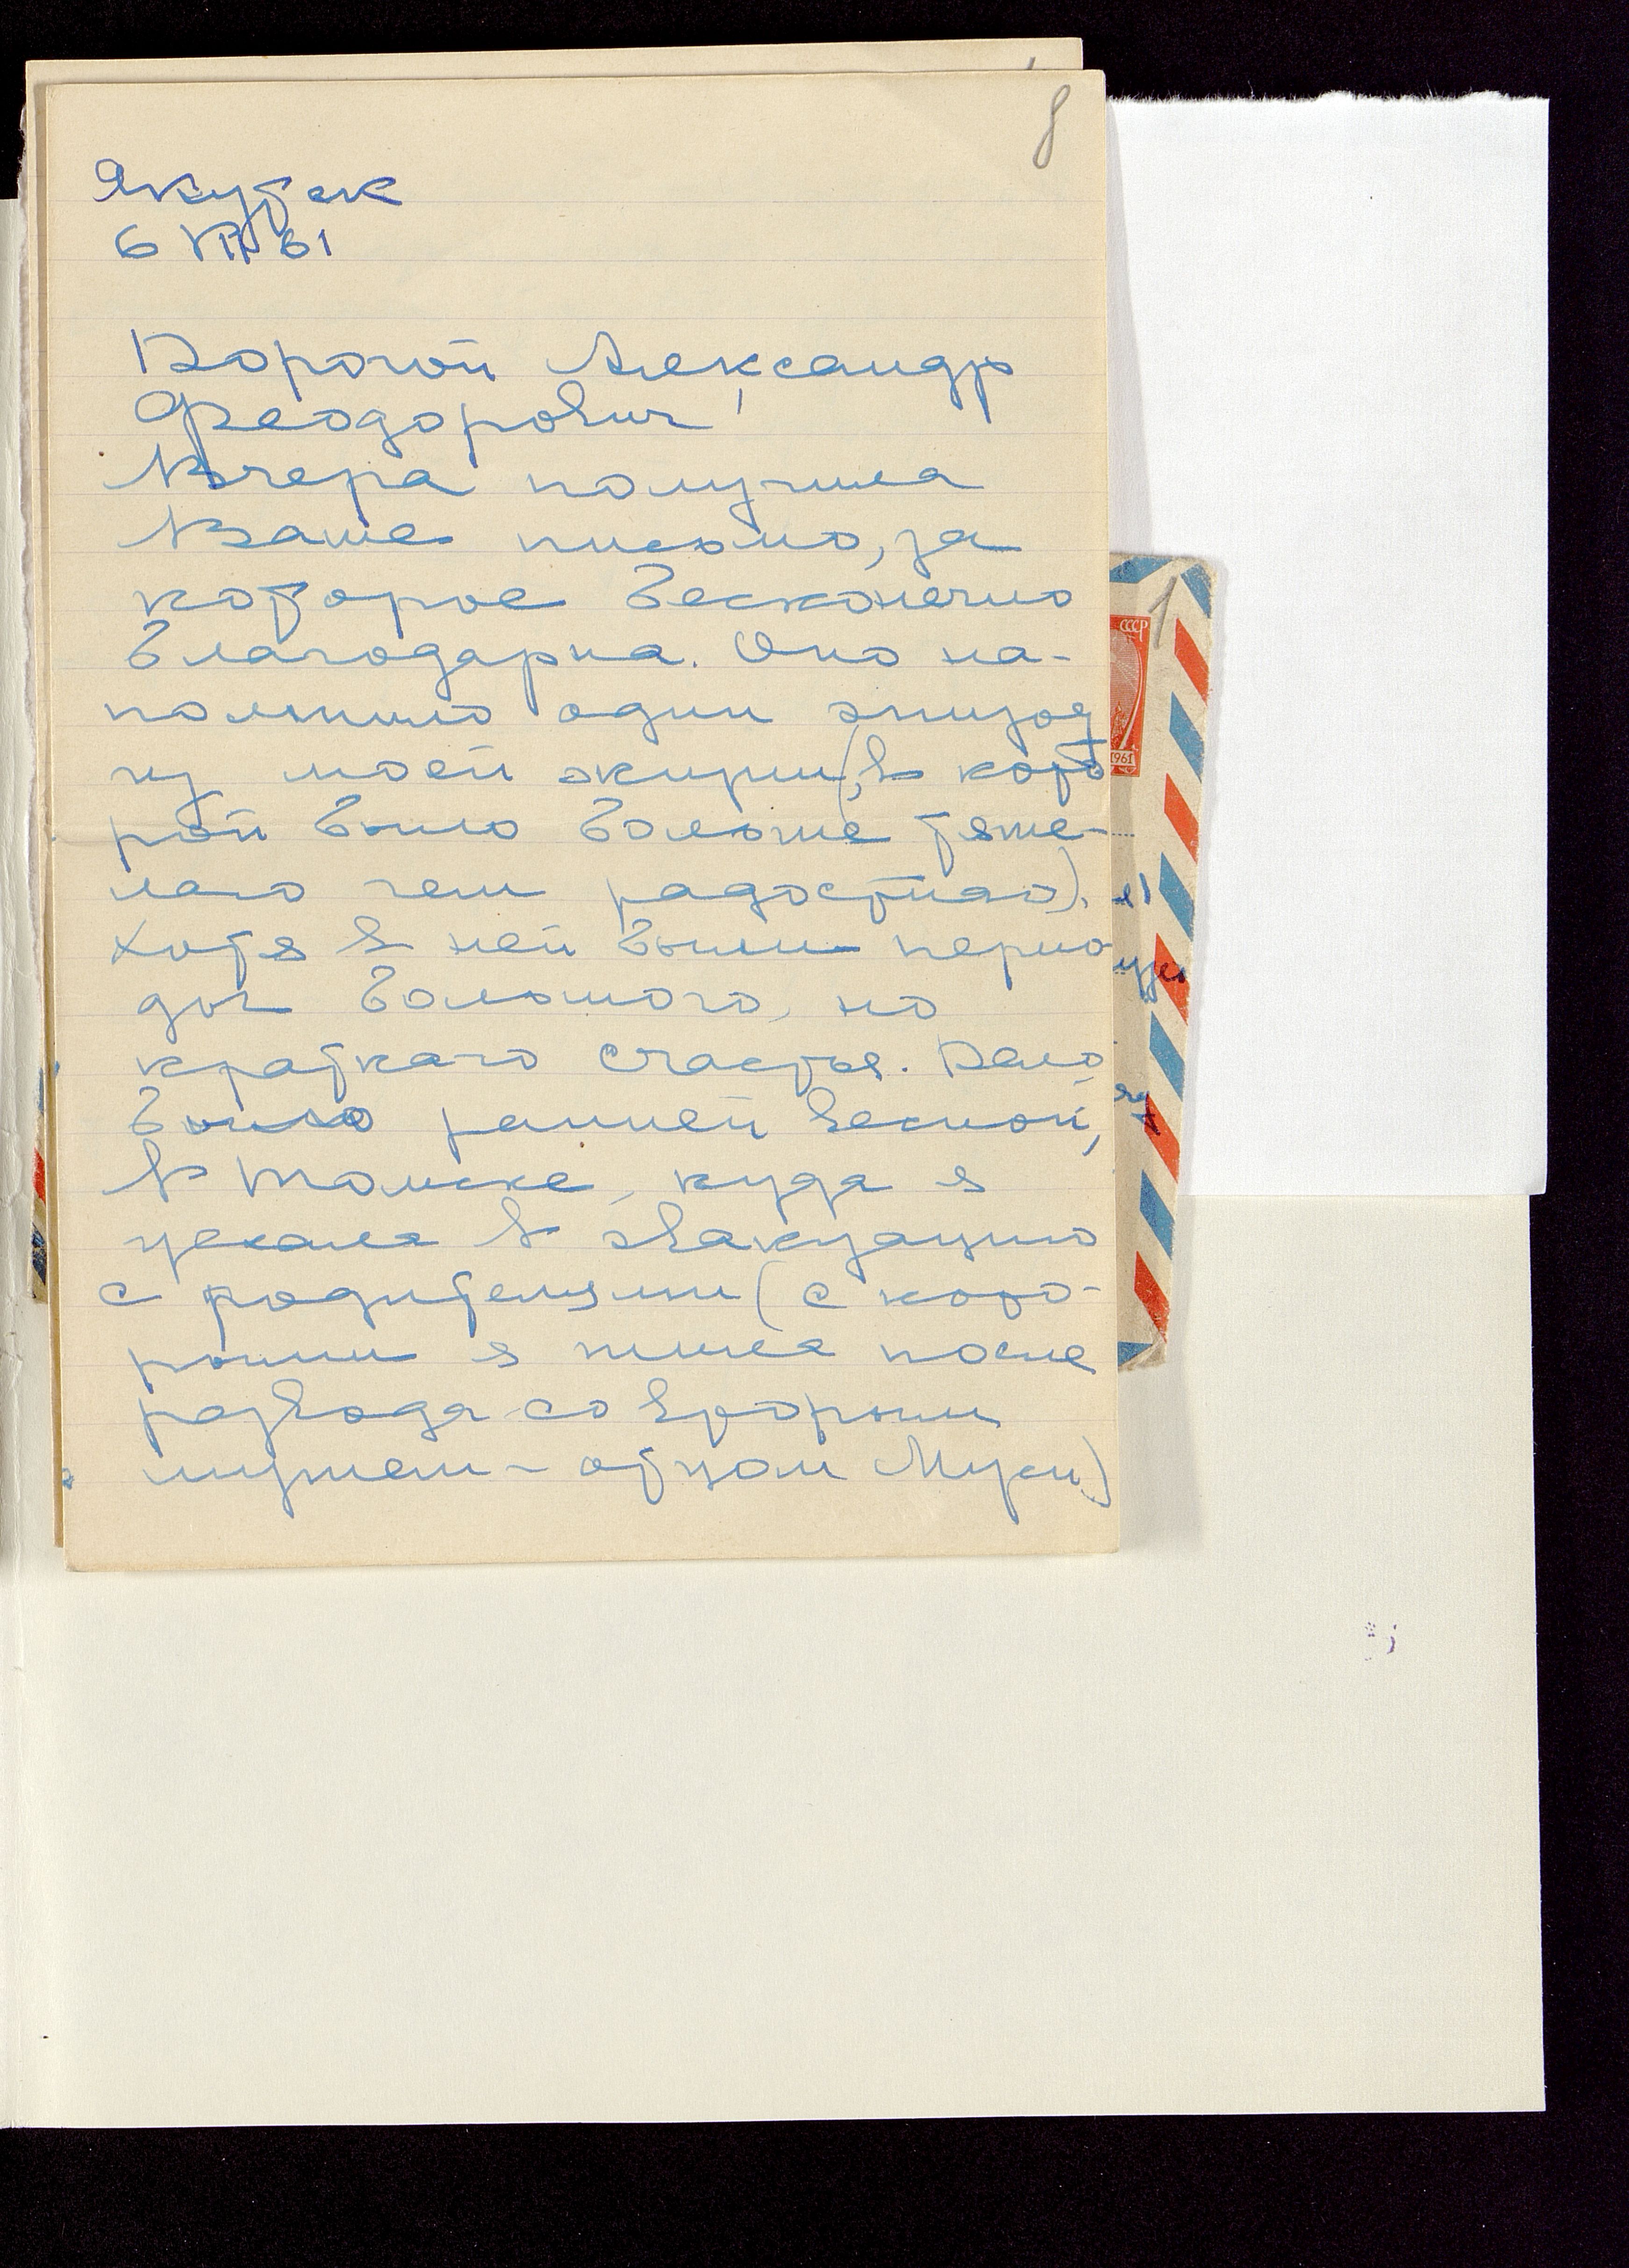 8
Якутск
6 VII 61
Дорогой Александр
Феодорович!
Вчера получила
Ваше письмо, за
которое бесконечно
благодарна. Оно на-
помнило один эпизод
из моей жизни (в кото
рой было больше тяже-
лаго чем радостнаго).
Хотя в ней были перио
ды большого, но
краткаго счастья. Дело
было ранней весной,
в Томске, куда я
уехала в эвакуацию
с родителями (с кото-
рыми я жила после
развода со вторым
мужем - отцом Муси)
1
СССР
1961